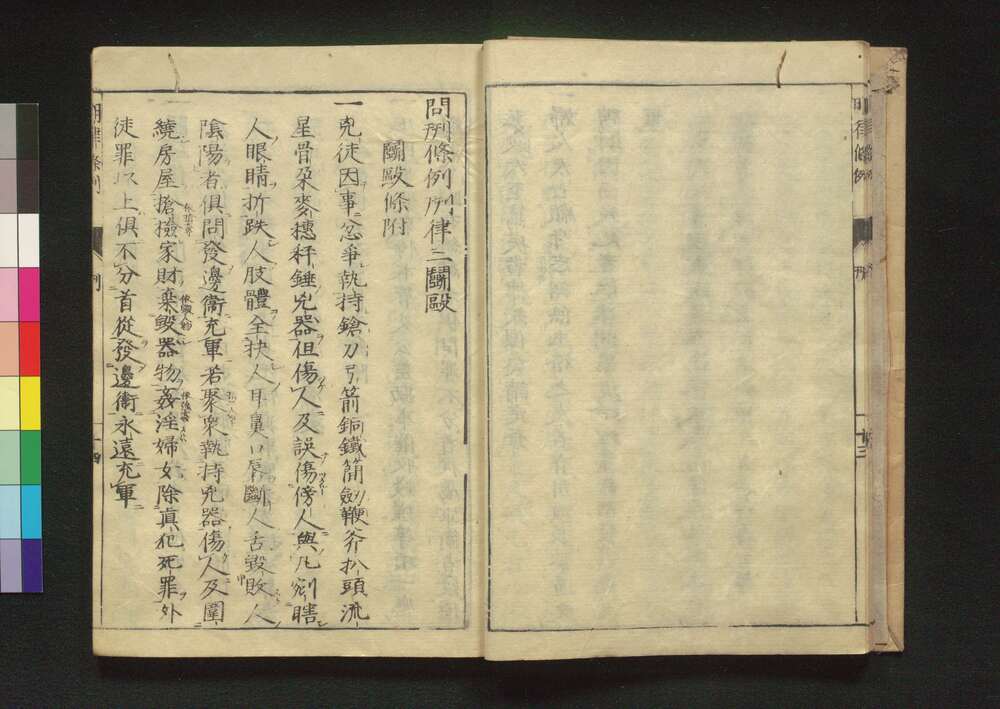 明律條例
十三
問刑條例刑律三鬪毆
鬪毆條附
一兇徒因事忿爭執持鎗刀弓箭銅鐵簡劍鞭斧扒頭流
星骨朶麥穗秤錘兇器但傷人及誤傷傍人與凡剜瞎
人眼睛折跌人肢體全抉人耳鼻口唇斷人舌毀敗人
陰陽者俱問發邊衛充軍若聚衆執持兇器傷人及圍
繞房屋搶撿家財棄毀器物姦淫婦女除真犯死罪外
徒罪以上俱不分首從發邊衛永遠充軍
明律條例